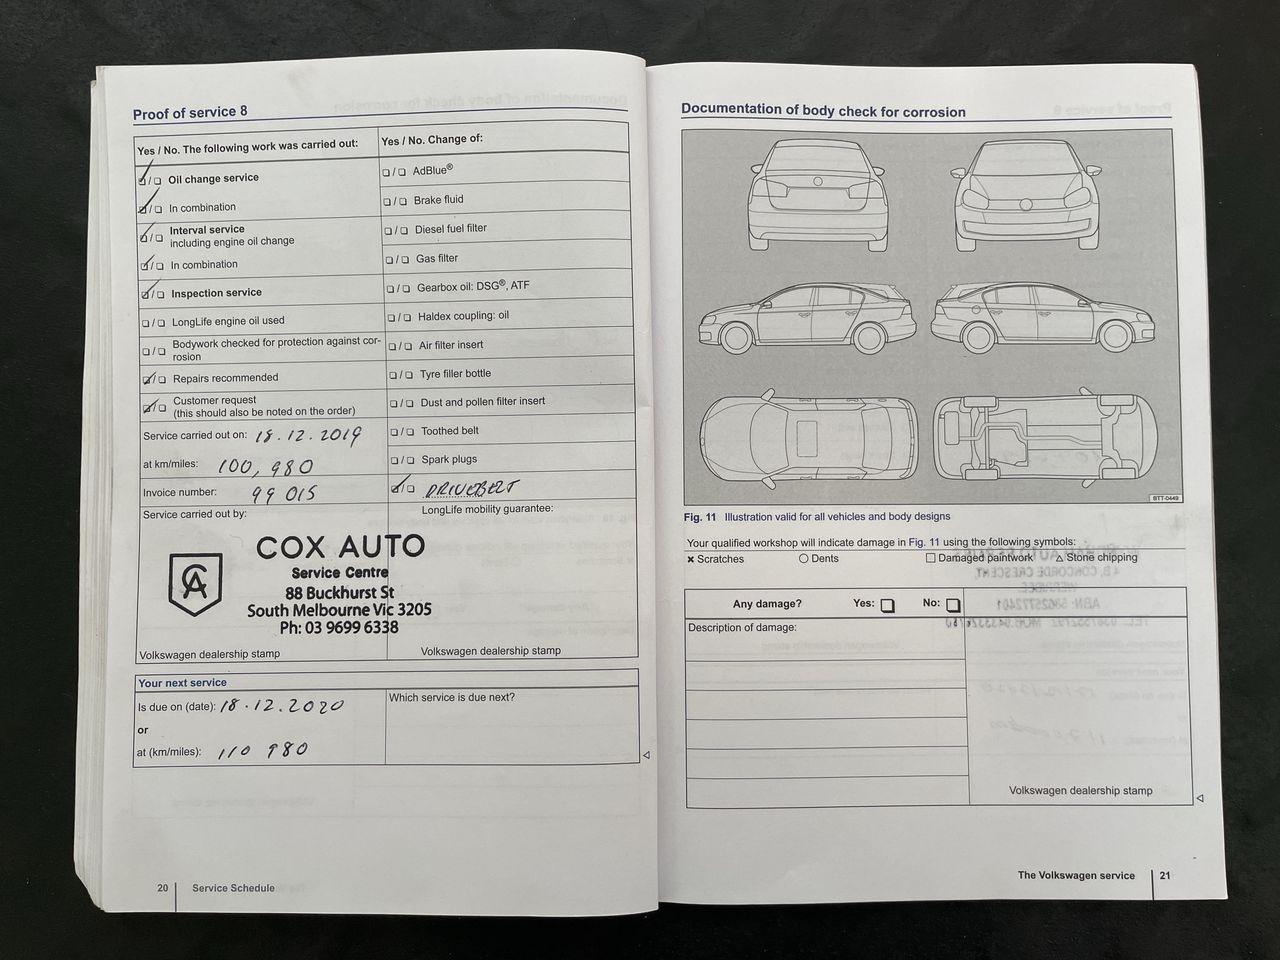 Proof of service 8
Yes / No. The following work was carried out:
Oil change service
In combination
Interval service
including engine oil change
In combination
Inspection service
LongLife engine oil used
Bodywork checked for protection against cor-
rosion
Repairs recommended
Customer request
(this should also be noted on the order)
Service carried out on: 18.12.2019
at km/miles: 100,980
Invoice number: 99015
Service carried out by:
COX AUTO
Service Centre
88 Buckhurst St
South Melbourne Vic 3205
Ph: 03 9699 6338
CA
Volkswagen dealership stamp
Yes / No. Change of:
AdBlue®
Brake fluid
Diesel fuel filter
Gas filter
Gearbox oil: DSG®, ATF
Haldex coupling: oil
Air filter insert
Tyre filler bottle
Dust and pollen filter insert
Toothed belt
Spark plugs
DRIVEBELT
LongLife mobility guarantee:
Volkswagen dealership stamp
Your next service
Is due on (date): 18.12.2020
or
at (km/miles): 110 980
Which service is due next?
20
Service Schedule
Documentation of body check for corrosion
BTT-0449
Fig. 11 Illustration valid for all vehicles and body designs
Your qualified workshop will indicate damage in Fig. 11 using the following symbols:
× Scratches ○ Dents □ Damaged paintwork △ Stone chipping
Any damage? Yes: No:
Description of damage:
Volkswagen dealership stamp
The Volkswagen service
21